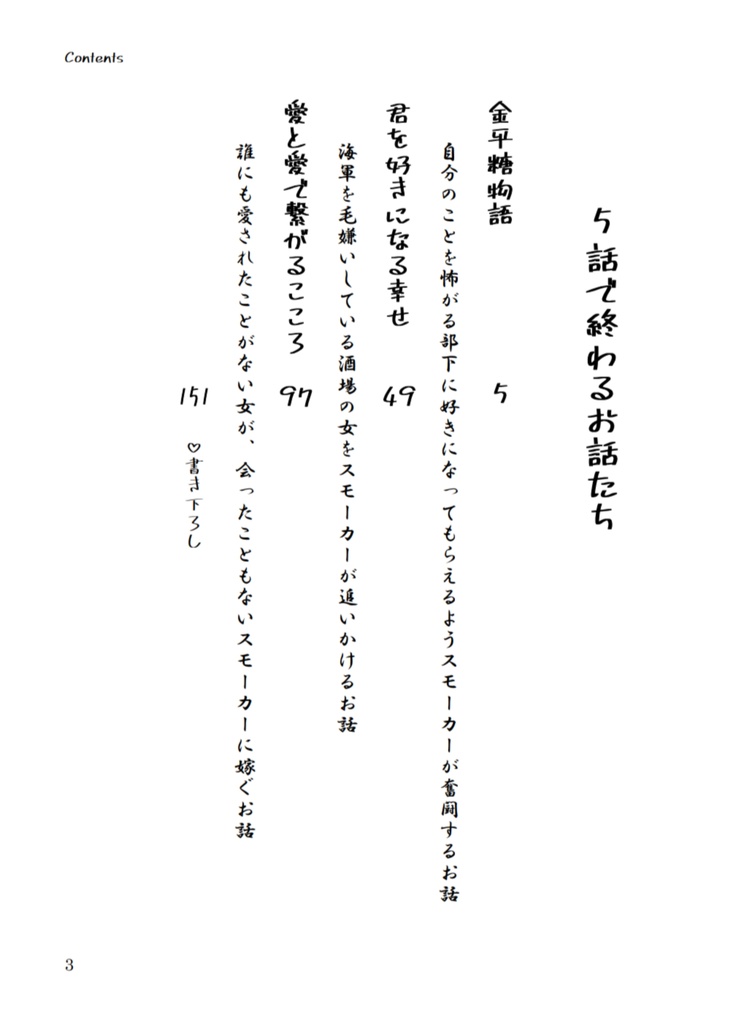 Contents
5話で終わるお話たち
金平糖物語 5
自分のことを怖がる部下に好きになってもらえるようスモーカーが奮闘するお話
君を好きになる幸せ 49
海軍を毛嫌いしている酒場の女をスモーカーが追いかけるお話
愛と愛で繋がるこころ 97
誰にも愛されたことがない女が、会ったこともないスモーカーに嫁ぐお話
151 ♡書き下ろし
3